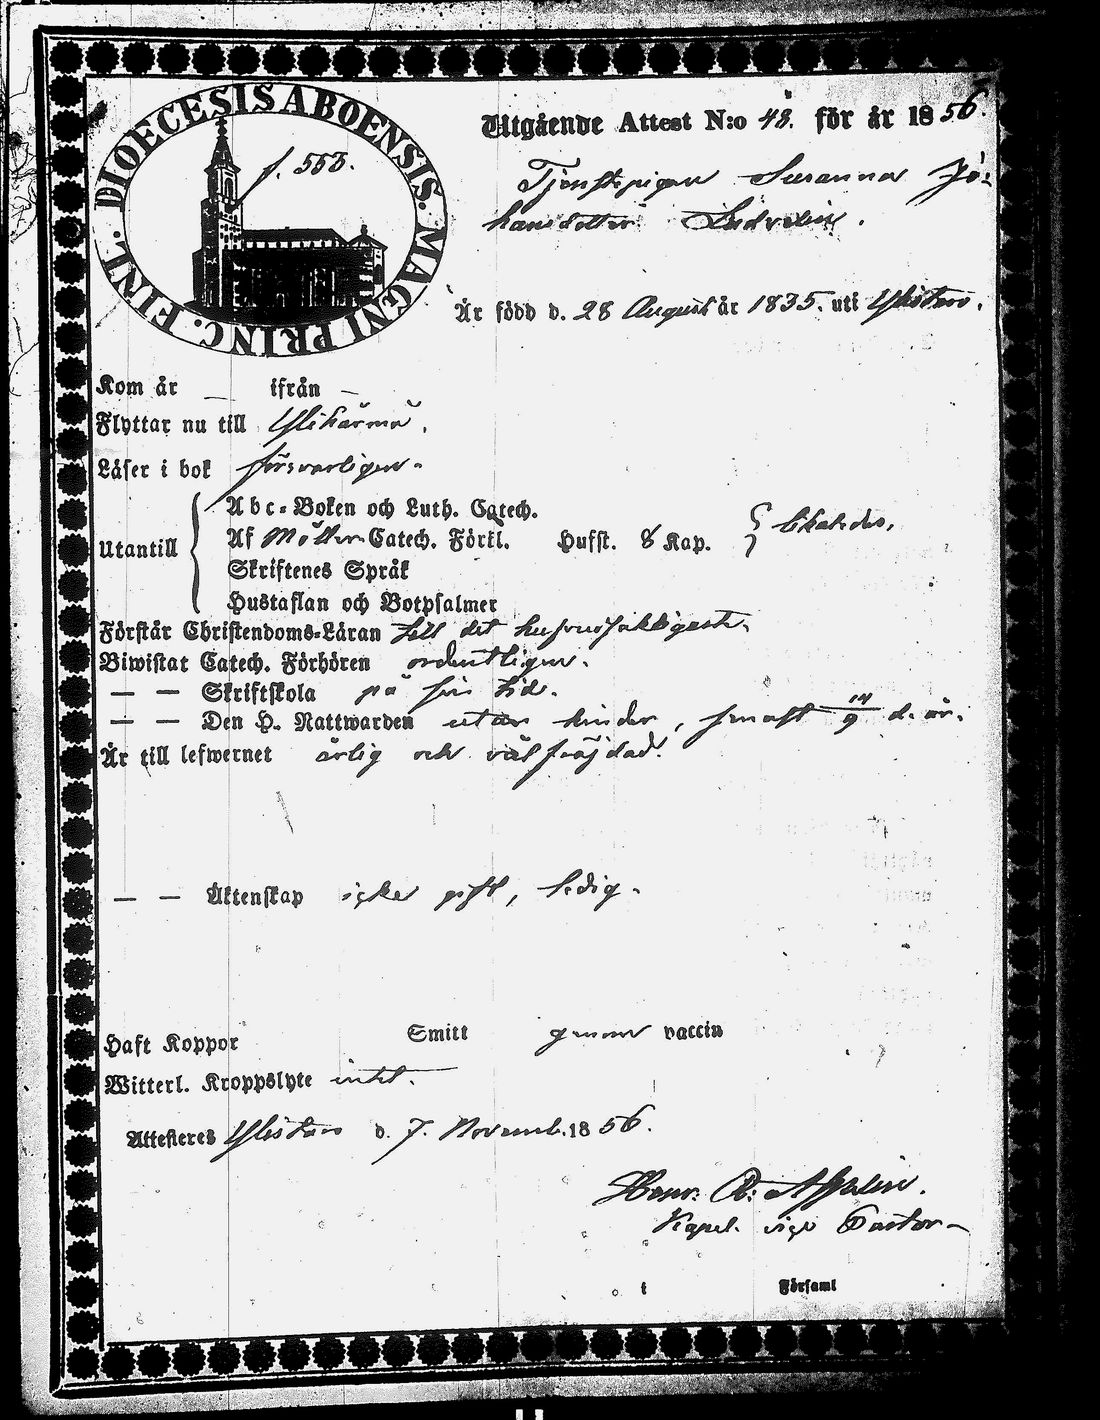 DIOECESIS ABOENSIS. MAGNI PRINC. FINL.
f. 553.
Utgående Attest N:o 48. för år 1856.
Tjenstepigan Susanna Jo-
hansdotter
Är född d. 28 August år 1835. uti Ylistaro.
Kom år — ifrån —
Flyttar nu till Ylihärmä.
Läser i bok försvarligen.
Utantill
Abc-Boken och Luth. Catech.
Af Möllers Catech. Förkl. Husft. 8 Kap.
Skriftenes Språk
Hustaflan och Botpsalmer
Förstår Christendoms-Läran till det hufvudsakligaste.
Biwistat Catech. Förhören ordentligen.
— — Skriftskola på sin tid.
— — Den H. Nattwarden utan hinder, senast 14/9 d. år.
Är till lefwernet ärlig och väl fräjdad.
— — Äktenskap icke gift, ledig.
Haft Koppor Smitt genom vaccin
Witterl. Kroppslyte intet.
Attesteres Ylistaro d. 7. Novemb. 1856.
Henr. 
Kapel. vice Pastor
i Församl